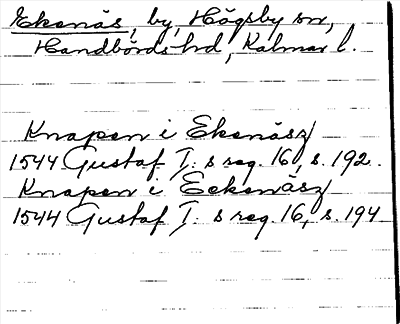 Ekenäs, by, Högsby sn,
Handbörds hd, Kalmar l.
Knapen i Ekenäsz
1544 Gustaf I: s reg. 16, s. 192.
Knapen i Eekenäsz
1544 Gustaf I: s reg. 16, s. 194